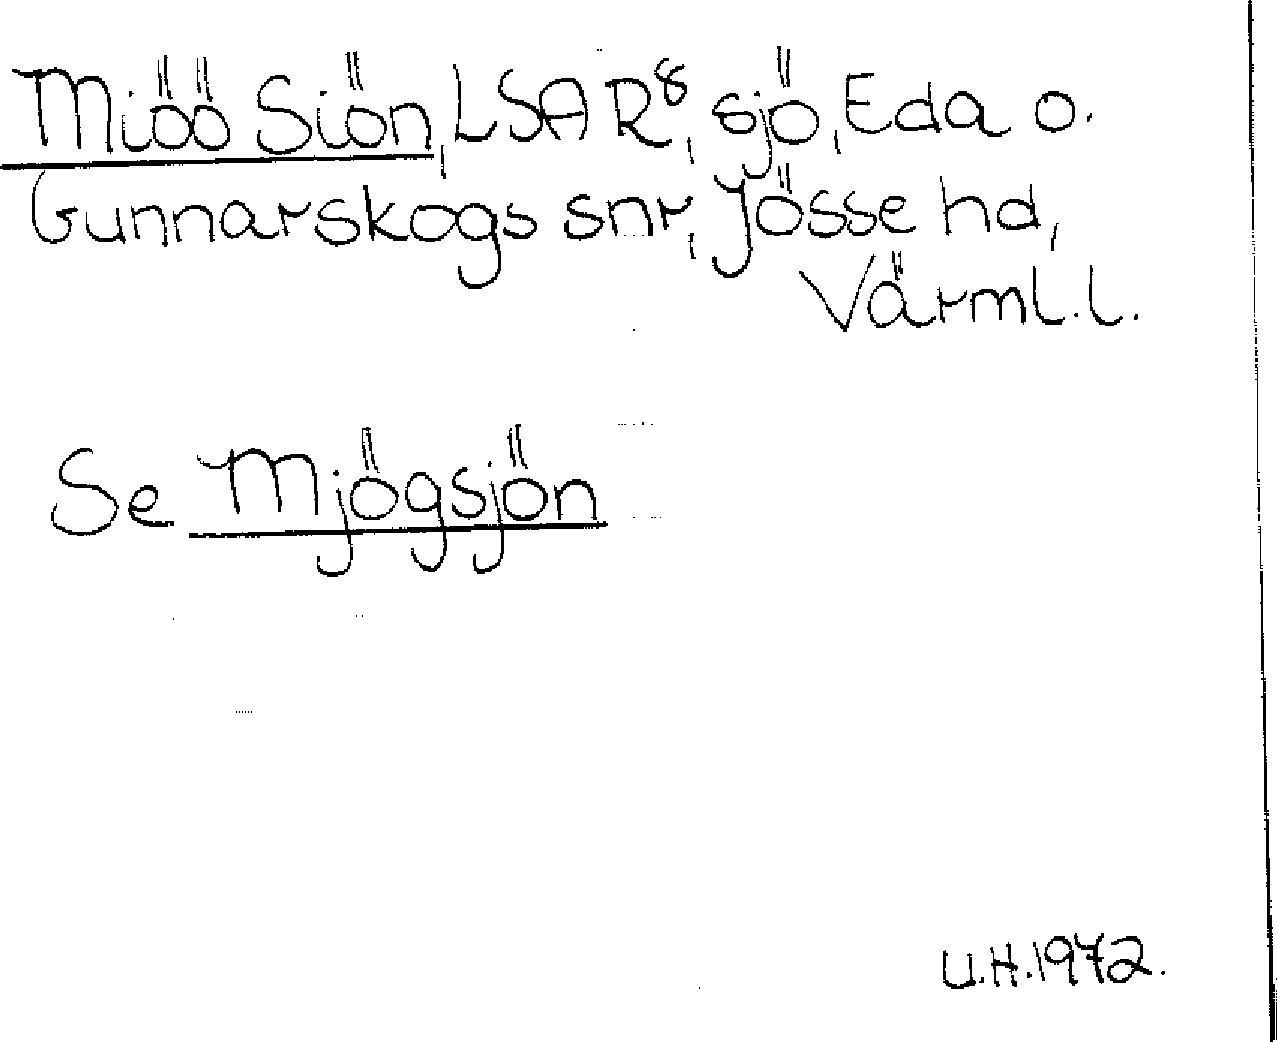 Miöö Siön, LSA R⁸, sjö, Eda o.
Gunnarskogs snr, Jösse hd,
Värml. l.
Se Mjögsjön
U.H. 1972.